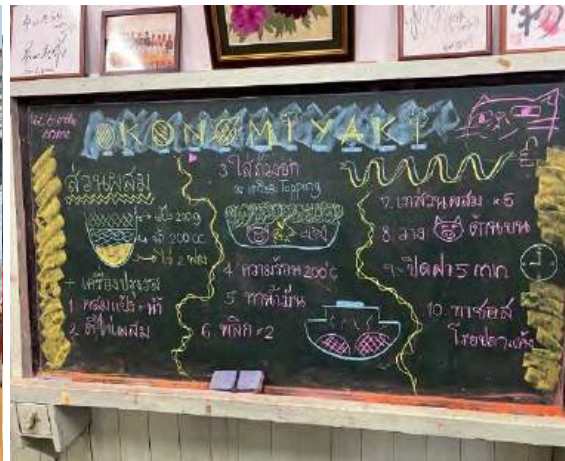 OKONOMIYAKI
ส่วนผสม
แป้ง 200g
น้ำ 200cc
ไข่ 2 ฟอง
+ เครื่องปรุงรส
1. ผสมแป้ง + น้ำ
2. ตีไข่ผสม
3 ใส่ถั่วงอก
Topping
4 ความร้อน 200°c
5 ทาน้ำมัน
6. พลิก ×2
7. เทส่วนผสม ×5
8. วาง ด้านบน
9. ปิดฝา 5 min
10. ทาซอส
โรยปลาแห้ง